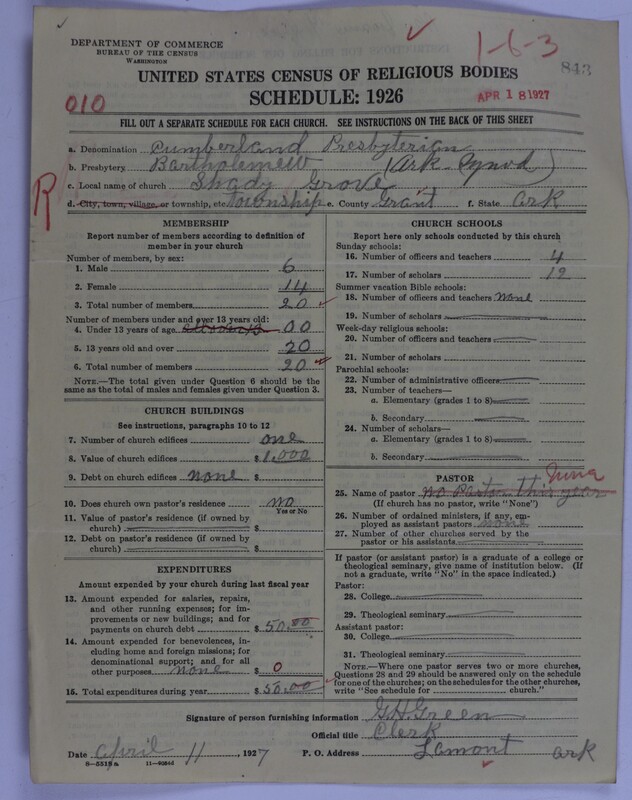 DEPARTMENT OF COMMERCE
BUREAU OF THE CENSUS
WASHINGTON
1-6-3
843
UNITED STATES CENSUS OF RELIGIOUS BODIES
SCHEDULE: 1926
010
APR 18 1927
FILL OUT A SEPARATE SCHEDULE FOR EACH CHURCH. SEE INSTRUCTIONS ON THE BACK OF THIS SHEET
a. Denomination Cumberland Presbyterian
b. Presbytery Bartholemew (Ark-Synod)
c. Local name of church Shady Grove
R
d. City, town, village, or township, etc. Township e. County Grant f. State Ark
MEMBERSHIP
Report number of members according to definition of member in your church
Number of members, by sex:
1. Male 6
2. Female 14
3. Total number of members 20
Number of members under and over 13 years old:
4. Under 13 years of age 00
5. 13 years old and over 20
6. Total number of members 20
NOTE.—The total given under Question 6 should be the
same as the total of males and females given under Question 3.
CHURCH BUILDINGS
See instructions, paragraphs 10 to 12
7. Number of church edifices one
8. Value of church edifices $1,000
9. Debt on church edifices none $
10. Does church own pastor's residence no
Yes or No
11. Value of pastor's residence (if owned by
church) $
12. Debt on pastor's residence (if owned by
church) $
EXPENDITURES
Amount expended by your church during last fiscal year
13. Amount expended for salaries, repairs,
and other running expenses; for im-
provements or new buildings; and for
payments on church debt $ 50.00
14. Amount expended for benevolences, in-
cluding home and foreign missions; for
denominational support; and for all
other purposes none $ 0
15. Total expenditures during year $ 50.00
CHURCH SCHOOLS
Report here only schools conducted by this church
Sunday schools:
16. Number of officers and teachers 4
17. Number of scholars 12
Summer vacation Bible schools:
18. Number of officers and teachers none
19. Number of scholars
Week-day religious schools:
20. Number of officers and teachers
21. Number of scholars
Parochial schools:
22. Number of administrative officers
23. Number of teachers—
a. Elementary (grades 1 to 8)
b. Secondary
24. Number of scholars—
a. Elementary (grades 1 to 8)
b. Secondary
PASTOR
25. Name of pastor no Pastor this year
(If church has no pastor, write "None")
26. Number of ordained ministers, if any, em-
ployed as assistant pastors none
27. Number of other churches served by the
pastor or his assistants
If pastor (or assistant pastor) is a graduate of a college or
theological seminary, give name of institution below. (If
not a graduate, write "No" in the space indicated.)
Pastor:
28. College
29. Theological seminary
Assistant pastor:
30. College
31. Theological seminary
NOTE.—Where one pastor serves two or more churches,
Questions 28 and 29 should be answered only on the schedule
for one of the churches; on the schedules for the other churches,
write "See schedule for church."
Signature of person furnishing information G.H. Green
Official title Clerk
Date April 11, 1927 P. O. Address Lamont Ark